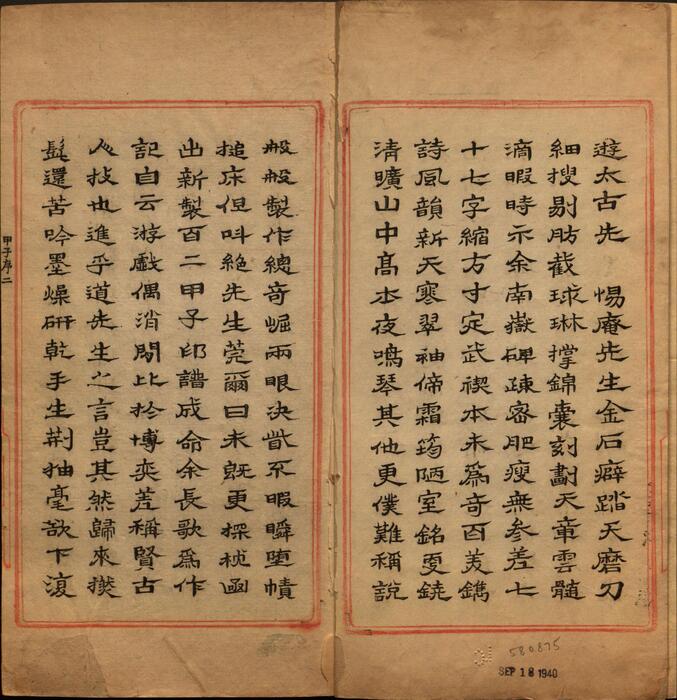 遊太古先　惕庵先生金石癖踏天磨刀
細搜剔肪截球琳撐錦囊刻劃天章雲髓
滴暇時示余南嶽碑疎密肥瘦無參差七
十七字縮方寸定武禊本未爲奇百美鐫
詩風韻新天寒翠袖霜筠陋室銘更饒
清曠山中高本夜鳴琴其他更僕難稱說
般般製作總奇崛兩眼決眥不暇瞬墮幘
搥床但叫絕先生莞爾曰未既更探枕函
出新製百二甲子印譜成命余長歌爲作
記自云游戲偶消閒比於博奕差稱賢古
人技也進乎道先生之言豈其然歸來撚
髭還苦吟墨燥研乾手生荆抽毫欲下復
甲子序二
580875
SEP 18 1940